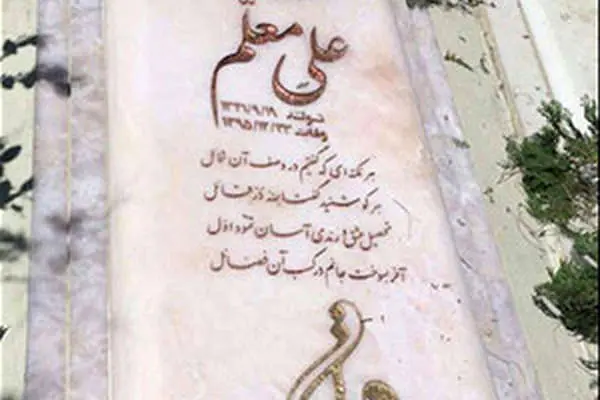 علی معلم
تولد ۱۳۴۱/۹/۱۹
وفات ۱۳۹۵/۱۲/۲۳
هر نکته‌ای که گفتم در وصف آن شمائل
هر کو شنید گفتا لله در قائل
تحصیل عشق و رندی آسان نمود اول
آخر بسوخت جانم در کسب آن فضائل